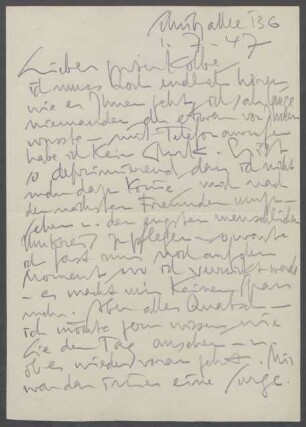 allee 136
1. 7. 47
Lieber Kolbe
ich muss doch endlich hören
wie es Ihnen geht, ich sah
niemanden der etwas von Ihnen
wusste – mit Telefonanrufen
habe ich kein Glück. Es ist
so deprimierend dass ich nicht
mehr dazu komme mich nach
den nächsten Freunden umzu
sehen u. den engsten menschlichen
Umkreis zu pflegen – so warte
ich fast nur noch auf den
Moment wo ich verreist werde
– es macht mir keinen Spass
mehr. Aber alles Quatsch –
ich möchte gern wissen, wie
Sie den Tag ansehen – u.
ob es wieder voran geht. Mir
war der eine Sorge.